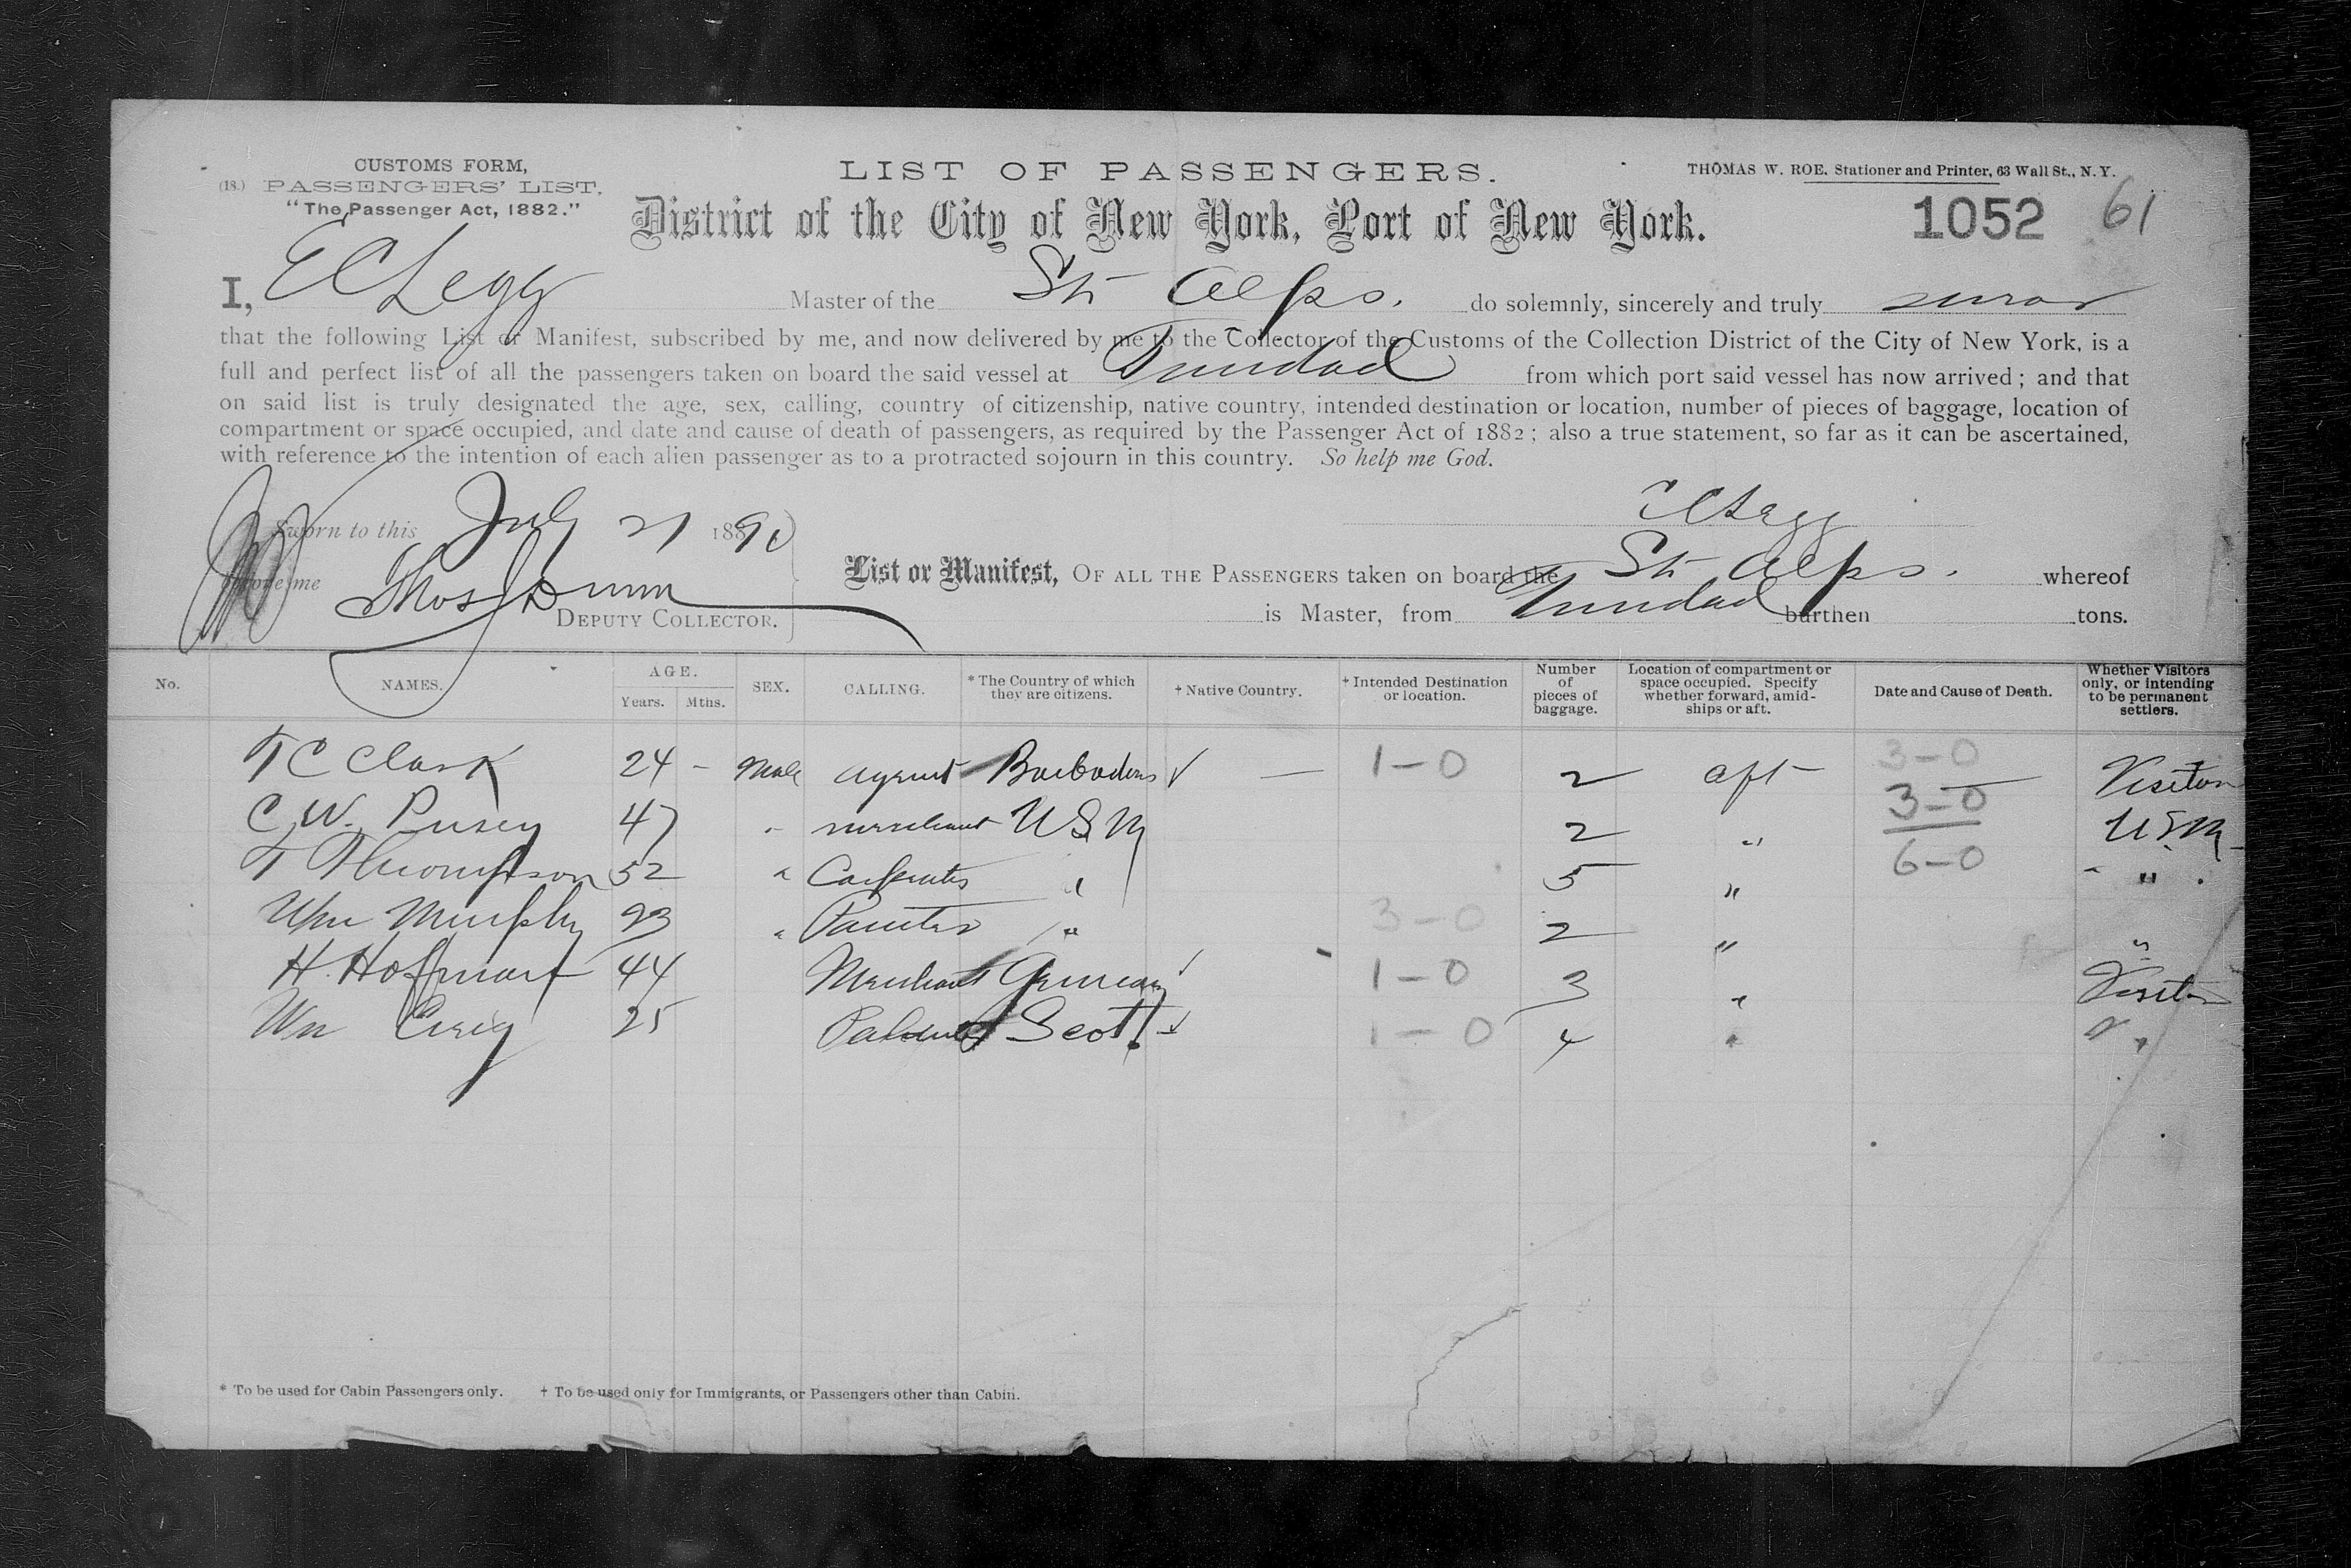 CUSTOMS FORM,
(18.) PASSENGERS' LIST.
"The Passenger Act, 1882."
LIST OF PASSENGERS.
THOMAS W. ROE, Stationer and Printer, 63 Wall St., N. Y.
District of the City of New York, Port of New York.
1052 61
I, E C Legg Master of the St Alps. do solemnly, sincerely and truly swear
that the following List or Manifest, subscribed by me, and now delivered by me to the Collector of the Customs of the Collection District of the City of New York, is a
full and perfect list of all the passengers taken on board the said vessel at Trinidad from which port said vessel has now arrived; and that
on said list is truly designated the age, sex, calling, country of citizenship, native country, intended destination or location, number of pieces of baggage, location of
compartment or space occupied, and date and cause of death of passengers, as required by the Passenger Act of 1882; also a true statement, so far as it can be ascertained,
with reference to the intention of each alien passenger as to a protracted sojourn in this country. So help me God.
Sworn to this July 21 1890 E C Legg
before me Thos Dunn
DEPUTY COLLECTOR.
List or Manifest, OF ALL THE PASSENGERS taken on board the St Alps. whereof
is Master, from Trinidad burthen tons.
No. NAMES. AGE. Years. Mths. SEX. CALLING. * The Country of which they are citizens. † Native Country. † Intended Destination or location. Number of pieces of baggage. Location of compartment or space occupied. Specify whether forward, amidships or aft. Date and Cause of Death. Whether Visitors only, or intending to be permanent settlers.
T C Clark 24 - Male agent Barbados √ — 1-0 2 aft 3-0 Visitor
C. W. Pusey 47 " merchant U S 2 " 3-0 U.S.
T Thompson 52 " Carpenter " 5 " 6-0 "
Wm Murphy 23 " Painter " 3-0 2 " "
H. Hoffman 44 Merchant Germany √ 1-0 3 " Visitor
Wm 25 Scot √ 1-0 4 " "
* To be used for Cabin Passengers only. † To be used only for Immigrants, or Passengers other than Cabin.